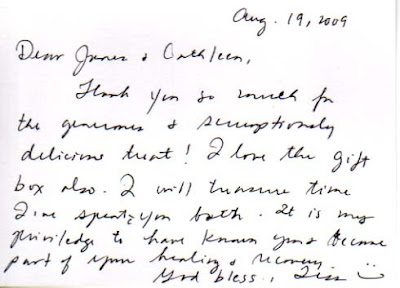 Aug. 19, 2009
Dear James & Cathleen,
Thank you so much for
the generous & scrumptiously
delicious treat! I love the gift
box also. I will treasure time
I've spent c you both. It is my
priviledge to have known you & become
part of your healing & recovery.
God bless, Tess